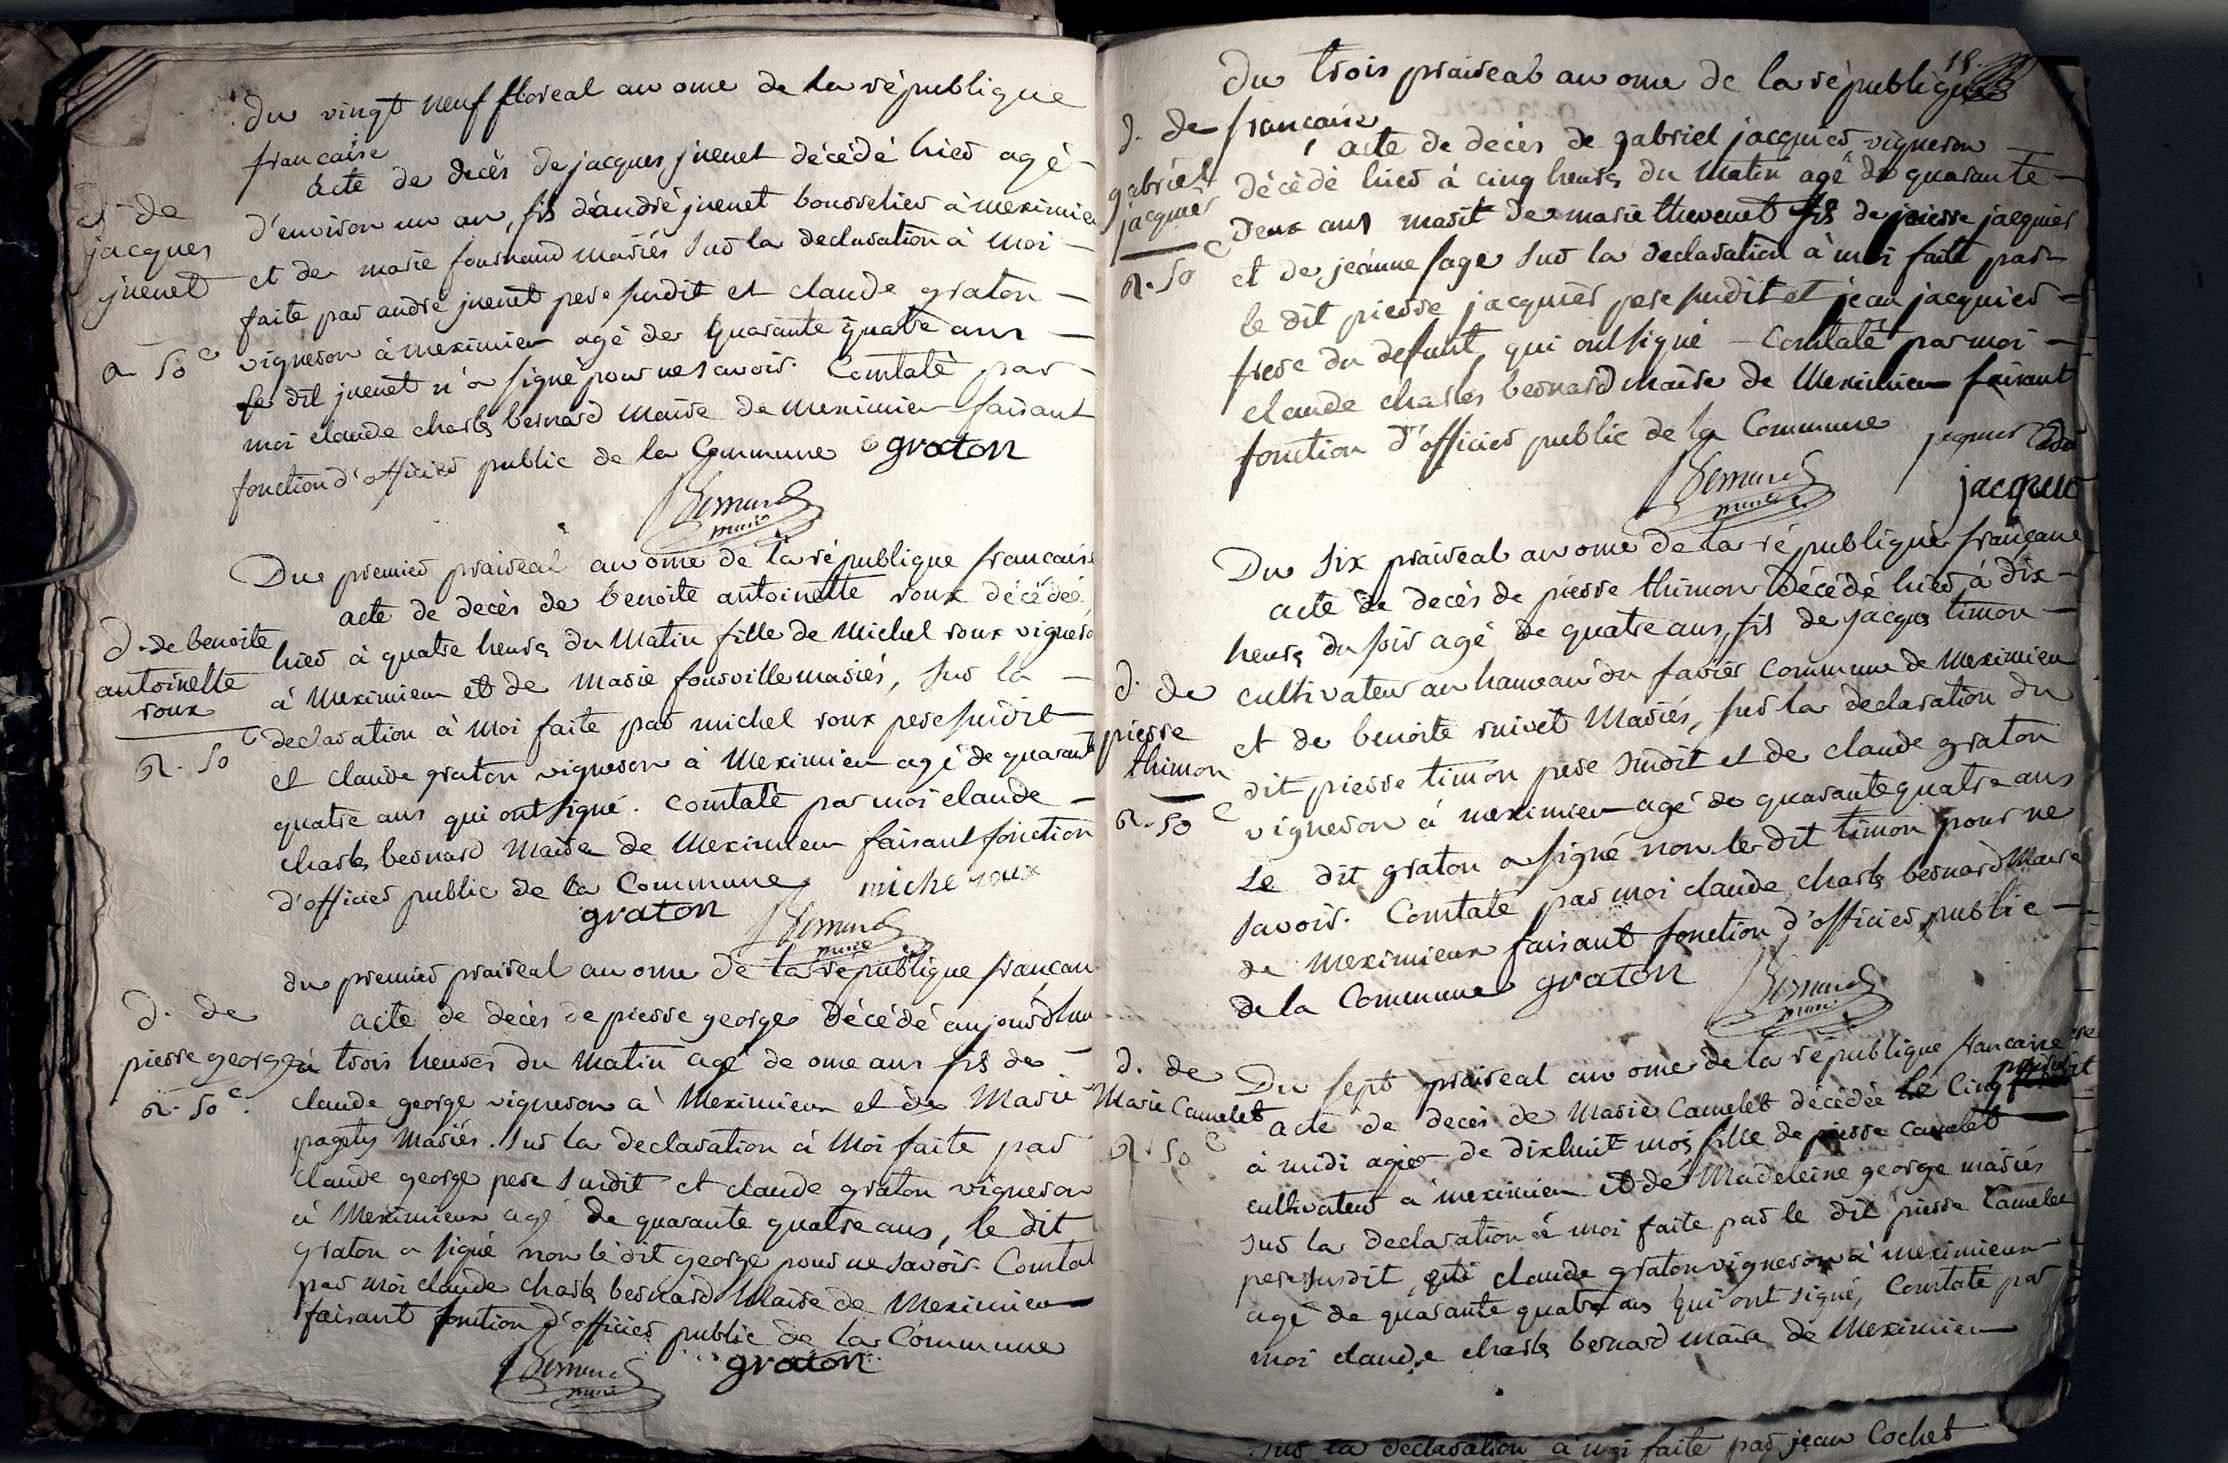 du vingt neuf floreal an onze de la république
francaise
acte de decès de jacques juenet décédé hier agé
d. de
jacques
juenet
d'environ un an, fils d'andré juenet bourrelier à meximieu
et de marie fournand mariés sur la declaration à moi
faite par andré juenet pere susdit et claude graton
vigneron à meximieu agé de quarante quatre ans
a 50 c
le dit juenet n'a signé pour ne savoir. Constaté par
moi claude charles bernard maire de meximieu faisant
fonction d'officier public de la Commune graton
Bernard
maire
Du premier prairéal an onze de la république francaise
acte de decès de benoite antoinette roux décédée
d. de benoite
antoinette
roux
hier à quatre heures du Matin fille de Michel roux vigneron
à Meximieu et de marie fourville mariés, sur la
declaration à Moi faite par michel roux pere susdit
a. 50 c
et claude graton vigneron à Meximieu agé de quarante
quatre ans qui ont signé. constaté par moi claude
charles bernard Maire de Meximieu faisant fonction
d'officier public de la Commune michel roux
graton Bernard
maire
du premier prairéal an onze de la république francaise
d. de
pierre george
a. 50 c.
acte de decès de pierre george décédé aujourd'hui
à trois heures du Matin agé de onze ans fils de
claude george vigneron à Meximieux et de Marie
pagety Mariés. sur la declaration à Moi faite par
claude george pere susdit et claude graton vigneron
à Meximieux agé de quarante quatre ans, le dit
graton a signé non le dit george pour ne savoir. Constaté
par moi claude charles bernard Maire de Meximieu
faisant fonction d'officier public de la Commune
Bernard graton
maire
18.
du trois prairéal an onze de la république
francaise
d. de
gabriel
jacquier
a. 50 c
acte de decès de gabriel jacquier vigneron
décédé hier à cinq heures du Matin agé de quarante
deux ans marit de marie thevenet fils de pierre jacquier
et de jeanne sage sur la declaration à moi faite par
le dit pierre jacquier pere susdit et jean jacquier
frere du defunt, qui ont signé Constaté par moi
claude charles bernard maire de Meximieu faisant
fonction d'officier public de la Commune
jacquier
Bernard
maire
Du six prairéal an onze de la république française
acte de decès de pierre thimon décédé hier à dix
heures du soir agé de quatre ans, fils de jacques timon
d. de
pierre
thimon
a. 50 c
cultivateur au hameau du favier commune de Meximieu
et de benoite ruivet Mariés, sur la declaration du
dit pierre timon pere susdit et de claude graton
vigneron à meximieu agé de quarante quatre ans
Le dit graton a signé non le dit timon pour ne
savoir. Constaté par moi claude charles bernard Maire
de Meximieux faisant fonction d'officier public
de la Commune graton Bernard
maire
d. de
Marie Camelet
a. 50 c
Du sept prairéal an onze de la république francaise
acte de decès de Marie Camelet décédée le cinq
à midi agée de dixhuit mois fille de pierre camelet
cultivateur à meximieu et de Madeleine george mariés
sur la declaration à moi faite par le dit pierre Camelet
pere susdit, claude graton vigneron à meximieux
agé de quarante quatre ans qui ont signé, Constaté par
moi claude charles bernard maire de Meximieu
sur la declaration à moi faite par jean Cochet